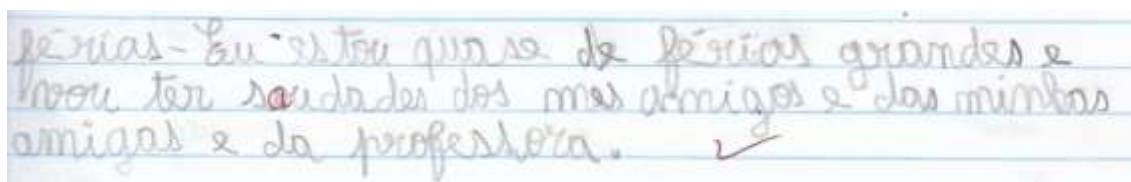 férias - Eu estou quase de férias grandes e
vou ter saudades dos mes amigos e das minhas
amigas e da professora.